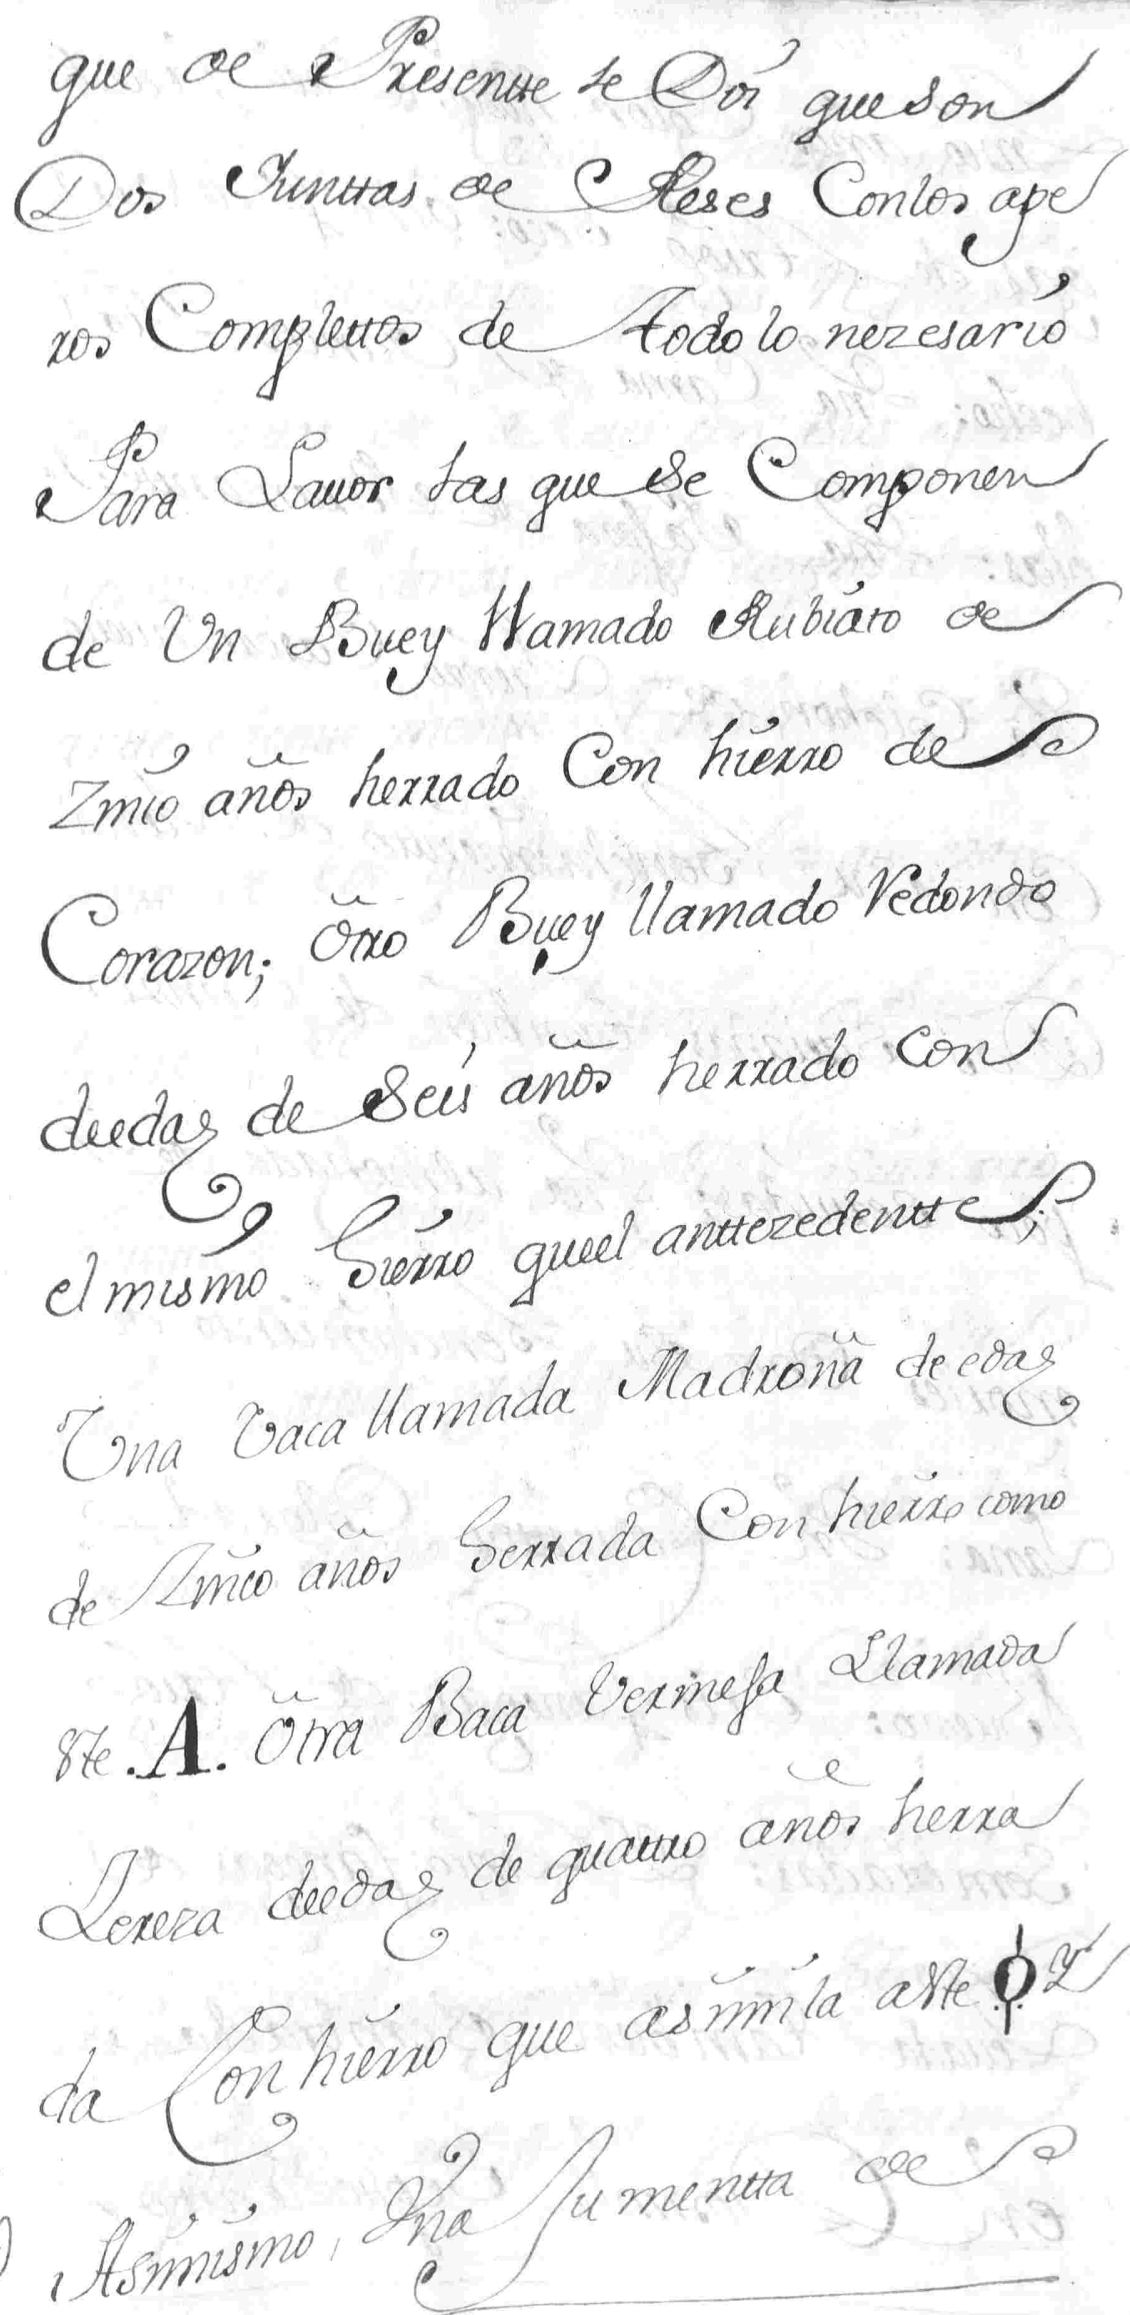 que de Presentte se Dói que son
Dos Junttas de Reses Con los ape
ros Complettos de todo lo nezesario
Para Lauor las que se Componen
de Un Buey llamado Rubiato de
Zinco años herrado Con hierro de
Corazon; otro Buey llamado Redondo
deedaz de seis años herrado con
el mismo hierro queel anttezedentte;
Una Vaca llamada Madroña de edaz
de Zinco años herrada Con hierro como
ste .A. otra Baca Vermesa Llamada
Zereza deedaz de quattro años herra
da Con hierro que asimila aste Y
Asimismo, Una Jumentta de